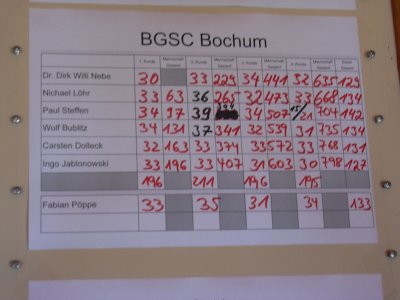 BGSC Bochum
1. Runde Mannschaft Gesamt 2. Runde Mannschaft Gesamt 3. Runde Mannschaft Gesamt 4. Runde Mannschaft Gesamt Einzel Gesamt
Dr. Dirk Willi Nebe 30 33 229 34 441 32 635 129
Michael Löhr 33 63 36 265 32 473 33 668 134
Paul Steffen 34 97 39 34 507 704 142
Wolf Bublitz 34 131 37 341 32 539 31 735 134
Carsten Dolleck 32 163 33 374 33 572 33 768 131
Ingo Jablonowski 33 196 33 407 31 603 30 798 127
196 211 196 195
Fabian Pöppe 33 35 31 34 133